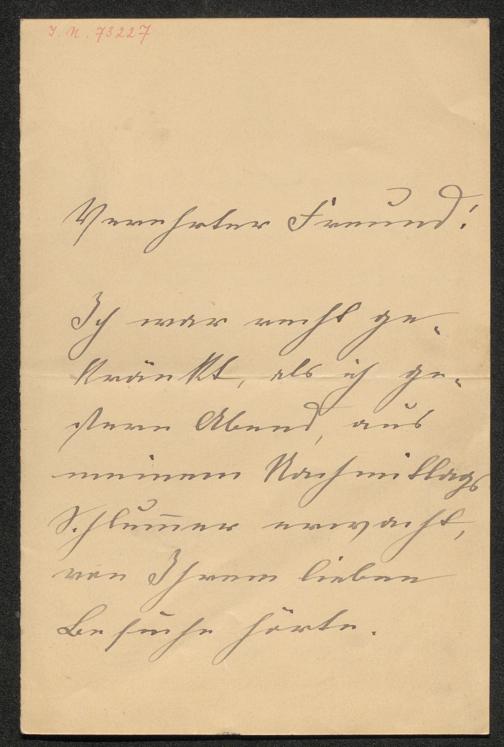 I. N. 73227
Verehrter Freund!
Ich war recht ge-
kränkt, als ich ge-
stern Abend, aus
meinem Nachmittags
Schlummer erwacht,
von Ihrem lieben
Besuche hörte.